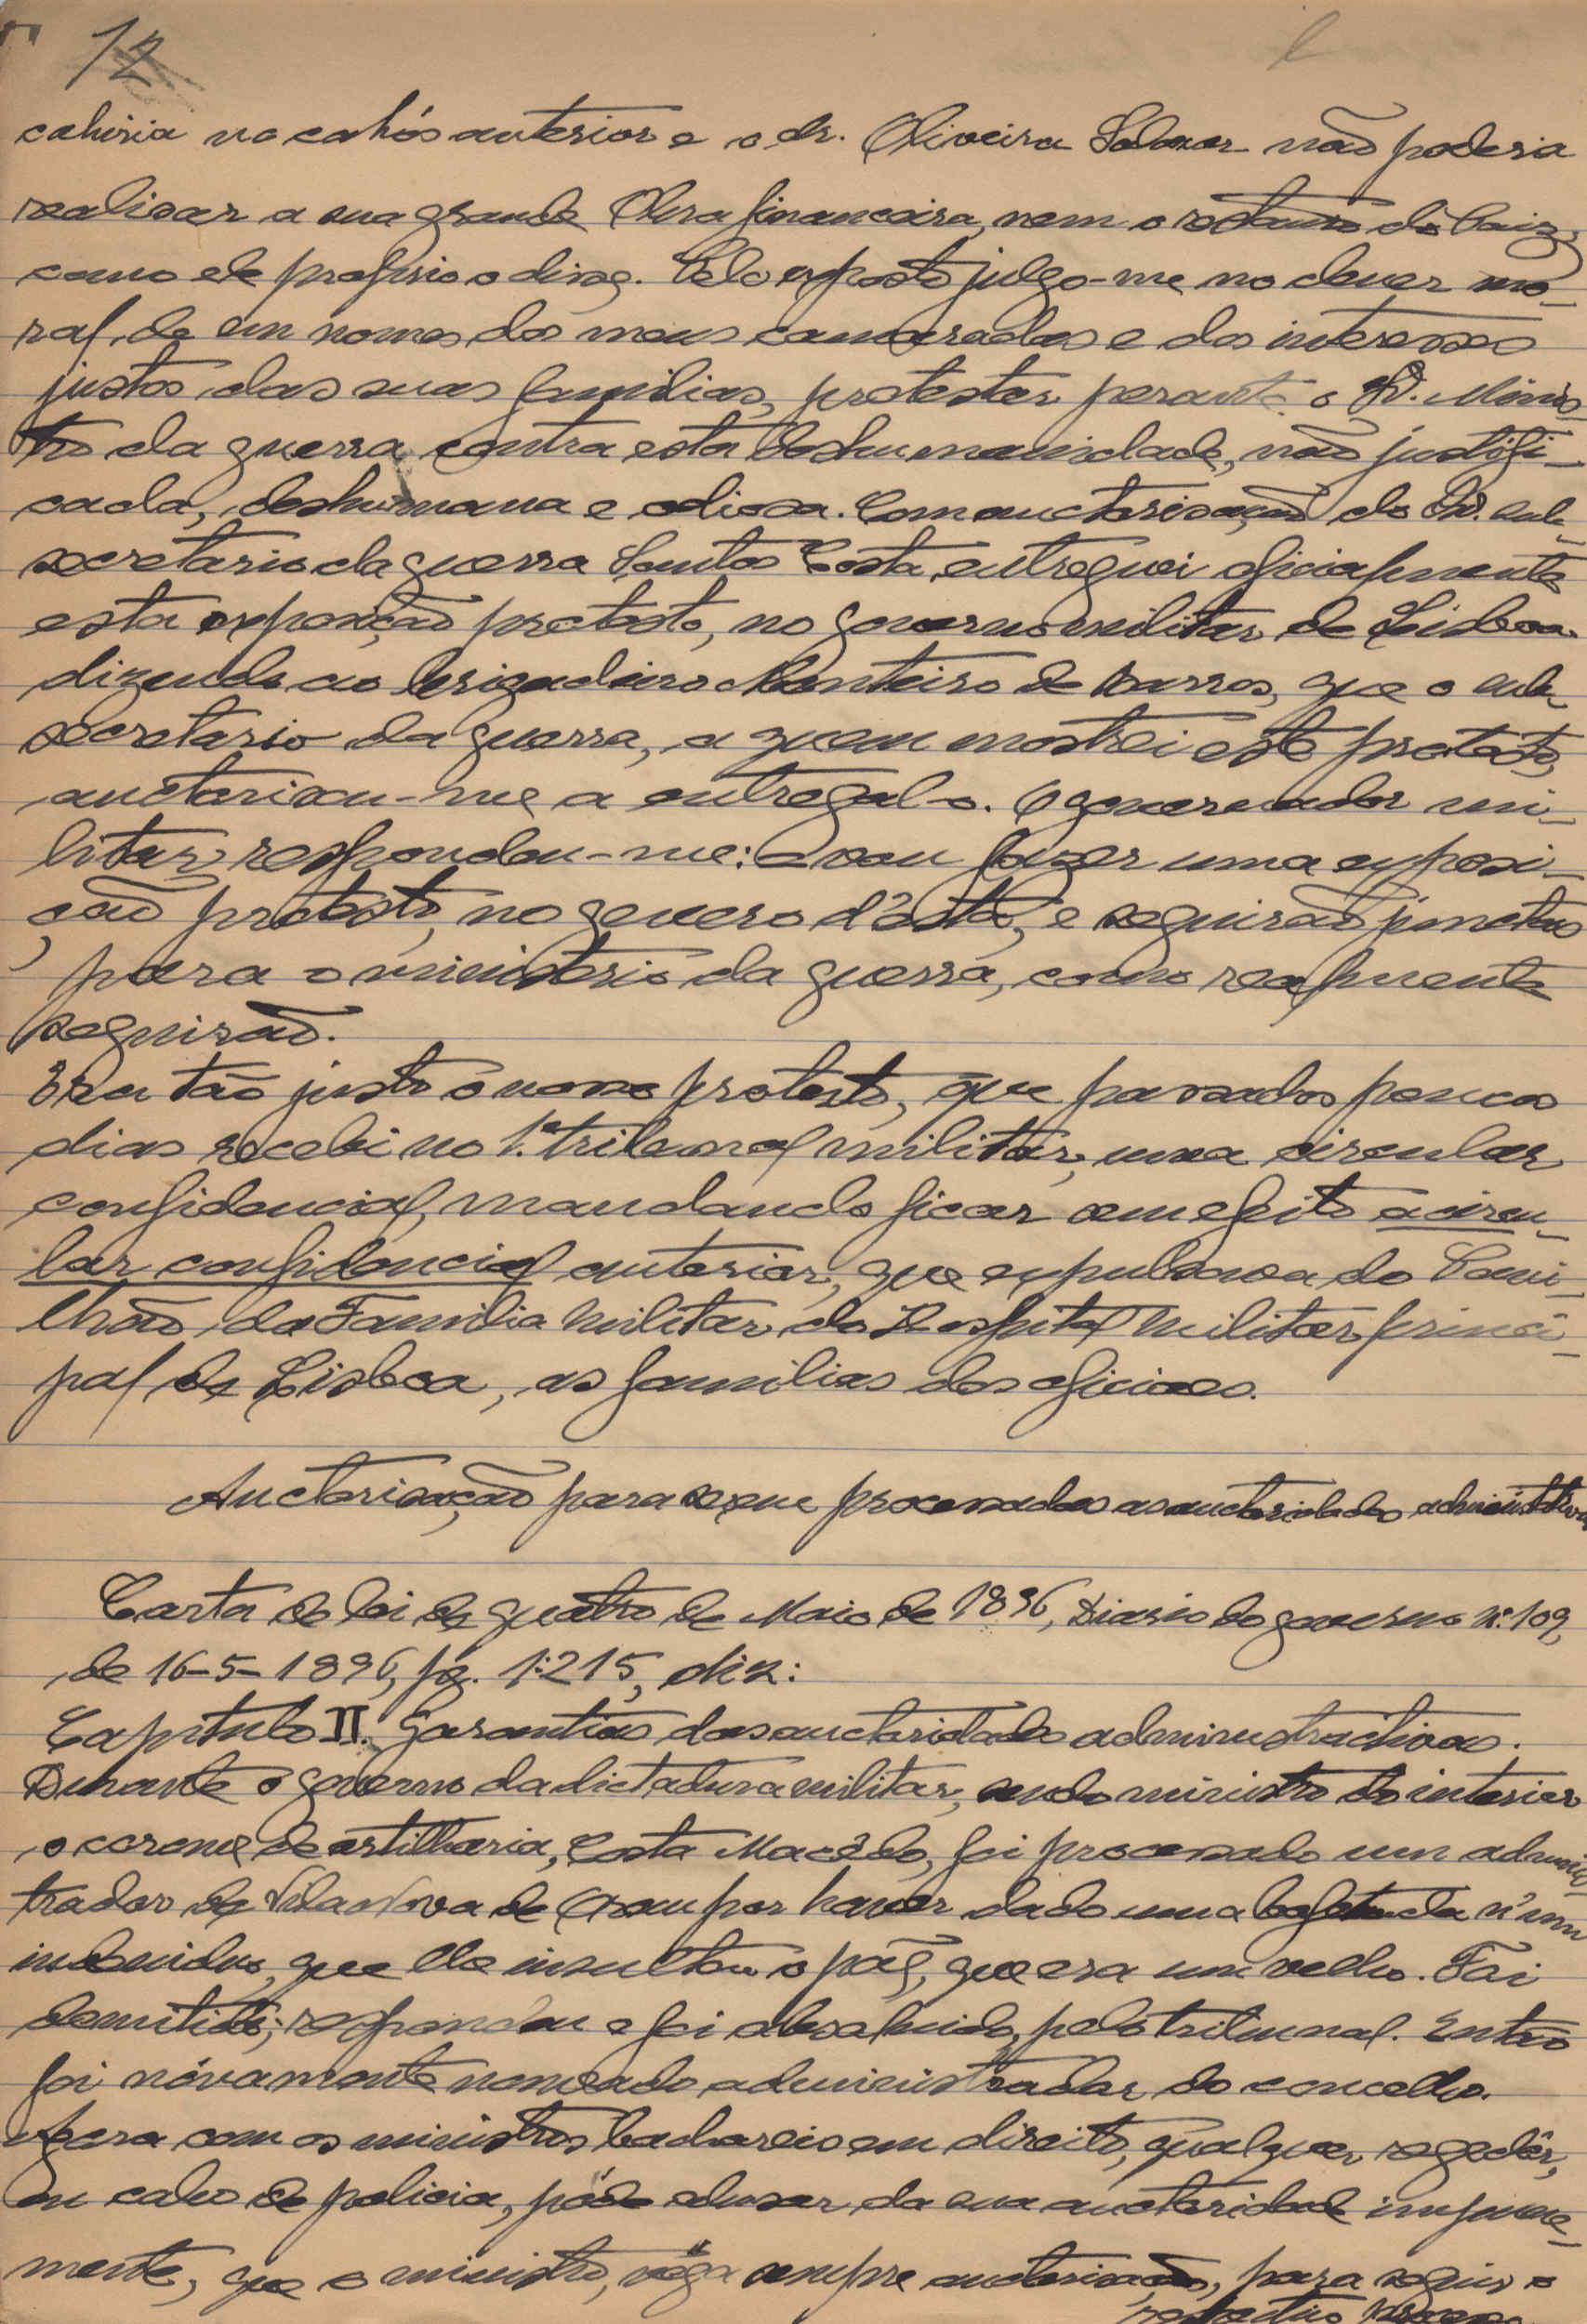 12
cahiria no cahós anterior e o dr. Oliveira Salazar não poderia
realisar a sua grande Obra financeira, nem o restauro do Paiz,
como ele proprio o disse. Pelo exposto julgo-me no dever mo-
ral, de em nome dos meus camaradas e dos interesses
justos das suas familias, protestar perante o Sr. Minis-
tro da guerra contra esta deshumanidade, não justifi-
cada, deshumana e odiosa. Com auctorisação do Sr. sub-
secretario da guerra Santos Costa, entreguei oficialmente
esta exposição protesto, no governo militar de Lisboa
dizendo ao brigadeiro Monteiro de Barros, que o sub-
secretario da guerra, a quem mostrei este protesto,
auctorisou-me a entregal-o. O governador mi-
litar respondeu-me: vou fazer uma exposi-
ção protesto, no genero d'esta, e seguirão junctas
para o ministerio da guerra, como realmente
seguirão.
Era tão justo o nosso protesto, que passados poucos
dias recebi no 1.º tribunal militar, uma circular
confidencial, mandando ficar sem efeito a circu-
lar confidencial anterior, que expulsava do Pavi-
lhão da Familia Militar do Hospital Militar princi-
pal de Lisboa, as familias dos oficiaes.
Auctorisação para serem processadas as auctoridades administrativas
Carta de lei de quatro de Maio de 1896, Diario do governo n.º 109,
de 16-5-1896, pg. 1:215, diz:
Capitulo II. Garantias das auctoridades administractivas.
Durante o governo da dictadura militar, sendo ministro do interior
o coronel de artilharia, Costa Macêdo, foi processado um adminis-
trador de Vila Nova de Ourem por haver dado uma bofetada n'um
individuo, que lhe insultou o pae, que era um velho. Foi
demitido; respondeu e foi absolvido, pelo tribunal. Então
foi nóvamente nomeado administrador do concelho.
Agora com os ministros bachareis em direito, qualquer regedôr,
ou cabo de policia, póde abusar da sua auctoridade impune-
mente, que o ministro, néga sempre auctorisação, para seguir o
respectivo processo